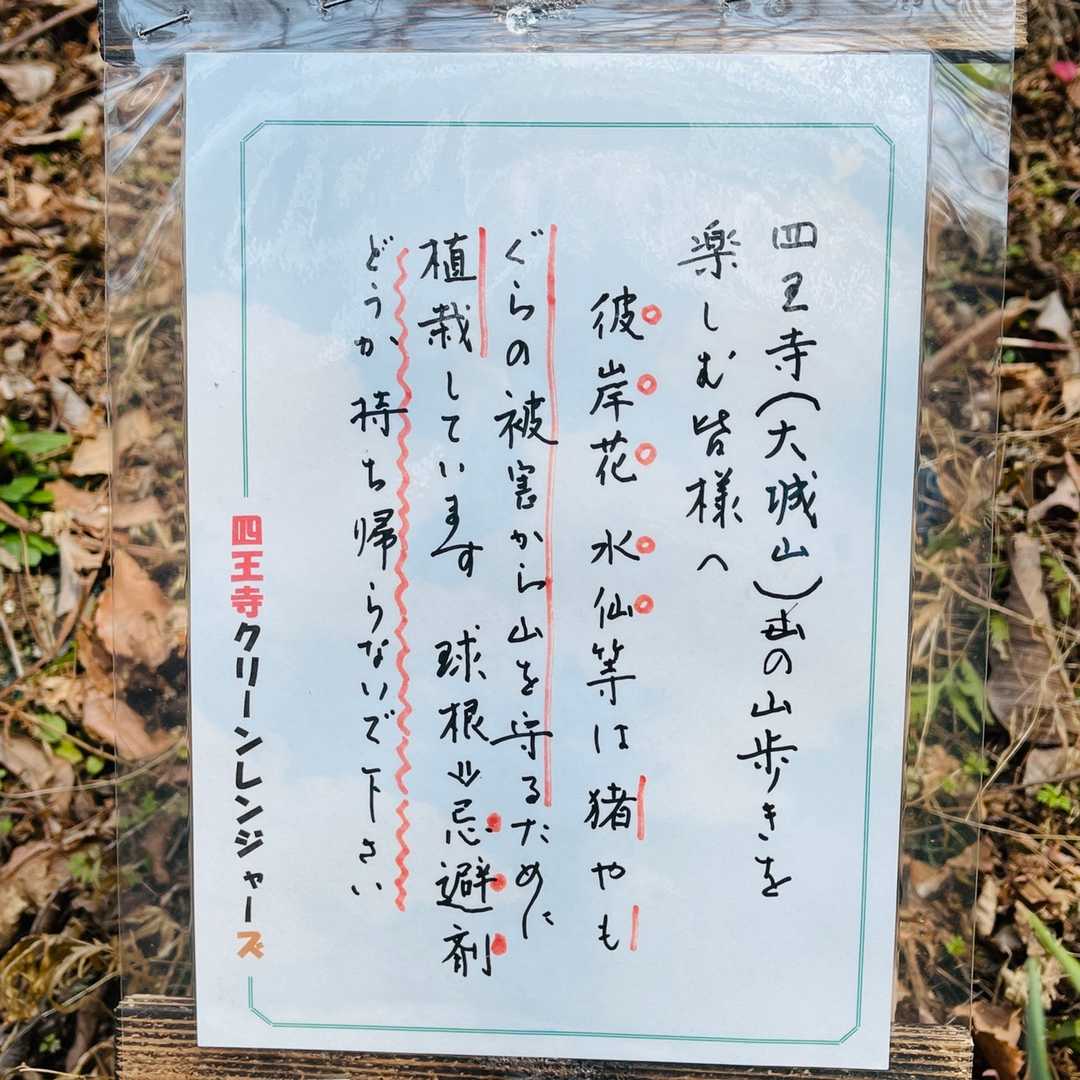 四王寺(大城山)の山歩きを
楽しむ皆様へ
彼岸花 水仙等は猪やも
ぐらの被害から山を守るために
植栽しています 球根⇒忌避剤
どうか持ち帰らないで下さい
四王寺クリーンレンジャーズ